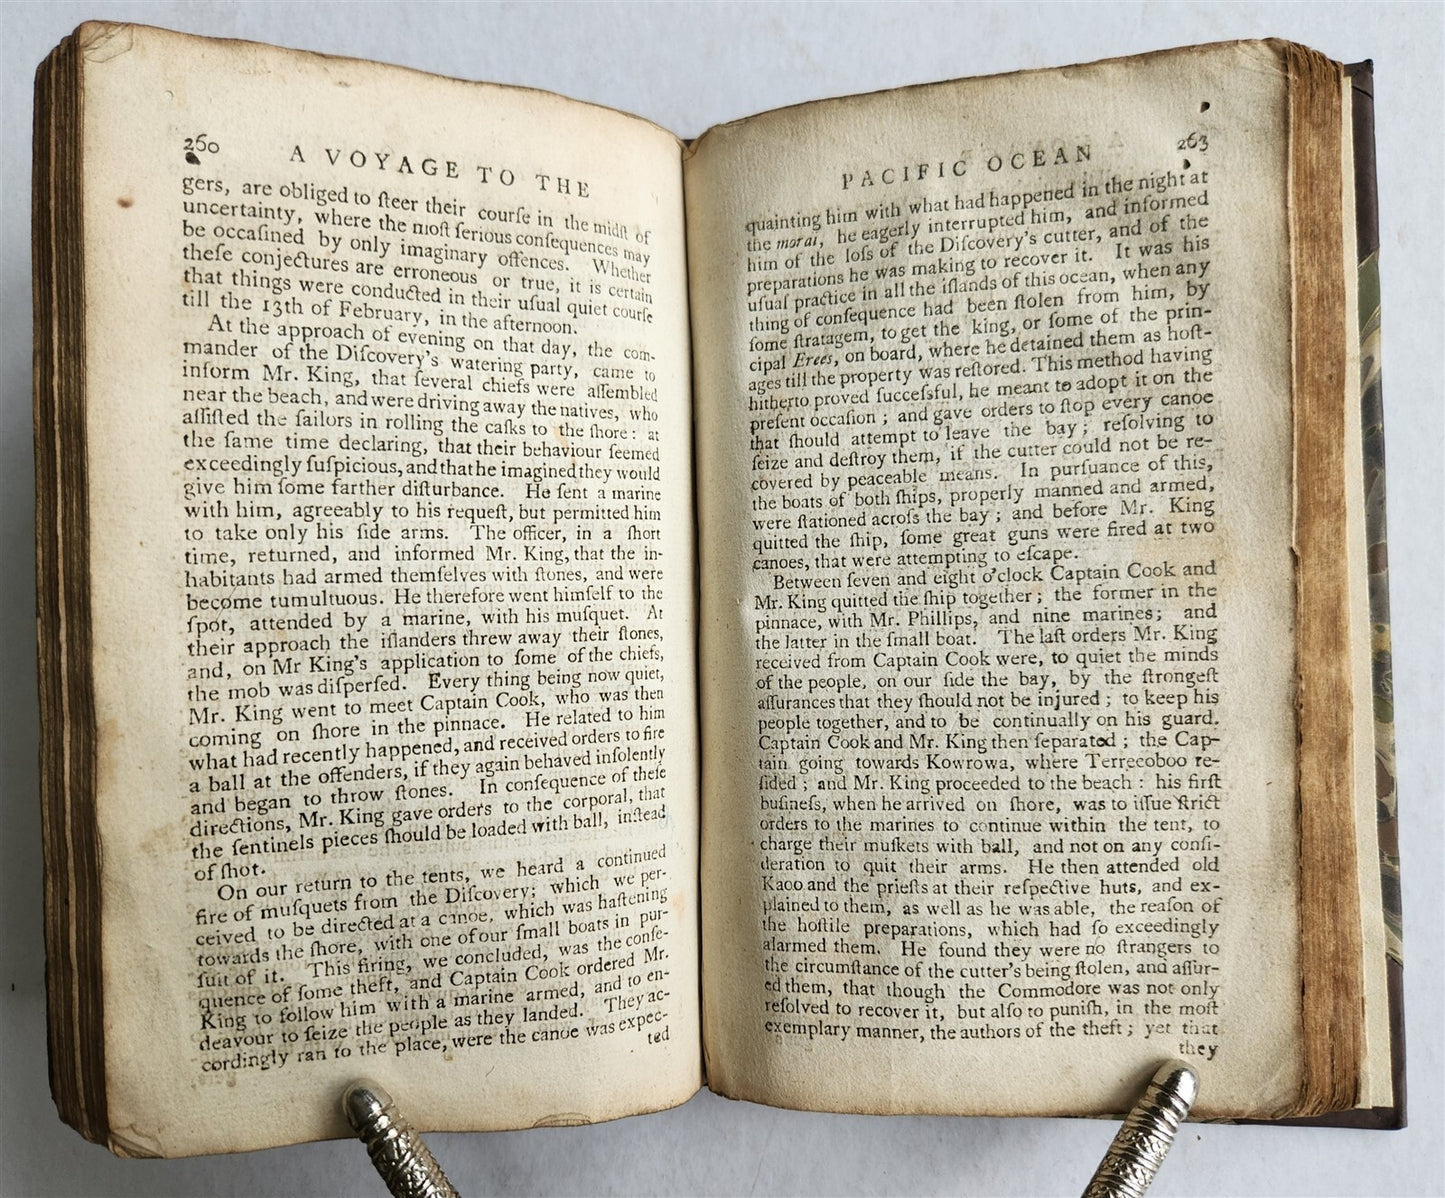 260
A VOYAGE TO THE
gers, are obliged to ſteer their courſe in the midſt of
uncertainty, where the moſt ſerious conſequences may
be occaſined by only imaginary offences. Whether
theſe conjectures are erroneous or true, it is certain
that things were conducted in their uſual quiet courſe
till the 13th of February, in the afternoon.
At the approach of evening on that day, the com-
mander of the Diſcovery's watering party, came to
inform Mr. King, that ſeveral chiefs were aſſembled
near the beach, and were driving away the natives, who
aſſiſted the ſailors in rolling the caſks to the ſhore: at
the ſame time declaring, that their behaviour ſeemed
exceedingly ſuſpicious, and that he imagined they would
give him ſome farther diſturbance. He ſent a marine
with him, agreeably to his requeſt, but permitted him
to take only his ſide arms. The officer, in a ſhort
time, returned, and informed Mr. King, that the in-
habitants had armed themſelves with ſtones, and were
become tumultuous. He therefore went himſelf to the
ſpot, attended by a marine, with his muſquet. At
their approach the iſlanders threw away their ſtones,
and, on Mr King's application to ſome of the chiefs,
the mob was diſperſed. Every thing being now quiet,
Mr. King went to meet Captain Cook, who was then
coming on ſhore in the pinnace. He related to him
what had recently happened, and received orders to fire
a ball at the offenders, if they again behaved inſolently
and began to throw ſtones. In conſequence of theſe
directions, Mr. King gave orders to the corporal, that
the ſentinels pieces ſhould be loaded with ball, inſtead
of ſhot.
On our return to the tents, we heard a continued
fire of muſquets from the Diſcovery; which we per-
ceived to be directed at a canoe, which was haſtening
towards the ſhore, with one of our ſmall boats in pur-
ſuit of it. This firing, we concluded, was the conſe-
quence of ſome theft, and Captain Cook ordered Mr.
King to follow him with a marine armed, and to en-
deavour to ſeize the people as they landed. They ac-
cordingly ran to the place, were the canoe was expec-
ted
PACIFIC OCEAN
263
quainting him with what had happened in the night at
the morai, he eagerly interrupted him, and informed
him of the loſs of the Diſcovery's cutter, and of the
preparations he was making to recover it. It was his
uſual practice in all the iſlands of this ocean, when any
thing of conſequence had been ſtolen from him, by
ſome ſtratagem, to get the king, or ſome of the prin-
cipal Erees, on board, where he detained them as hoſt-
ages till the property was reſtored. This method having
hitherto proved ſucceſsful, he meant to adopt it on the
preſent occaſion; and gave orders to ſtop every canoe
that ſhould attempt to leave the bay; reſolving to
ſeize and deſtroy them, if the cutter could not be re-
covered by peaceable means. In purſuance of this,
the boats of both ſhips, properly manned and armed,
were ſtationed acroſs the bay; and before Mr. King
quitted the ſhip, ſome great guns were fired at two
canoes, that were attempting to eſcape.
Between ſeven and eight o'clock Captain Cook and
Mr. King quitted the ſhip together; the former in the
pinnace, with Mr. Phillips, and nine marines; and
the latter in the ſmall boat. The laſt orders Mr. King
received from Captain Cook were, to quiet the minds
of the people, on our ſide the bay, by the ſtrongeſt
aſſurances that they ſhould not be injured; to keep his
people together, and to be continually on his guard.
Captain Cook and Mr. King then ſeparated; the Cap-
tain going towards Kowrowa, where Terreeoboo re-
ſided; and Mr. King proceeded to the beach: his firſt
buſineſs, when he arrived on ſhore, was to iſſue ſtrict
orders to the marines to continue within the tent, to
charge their muſkets with ball, and not on any conſi-
deration to quit their arms. He then attended old
Kaoo and the prieſts at their reſpective huts, and ex-
plained to them, as well as he was able, the reaſon of
the hoſtile preparations, which had ſo exceedingly
alarmed them. He found they were no ſtrangers to
the circumſtance of the cutter's being ſtolen, and aſſur-
ed them, that though the Commodore was not only
reſolved to recover it, but alſo to puniſh, in the moſt
exemplary manner, the authors of the theft; yet that
they